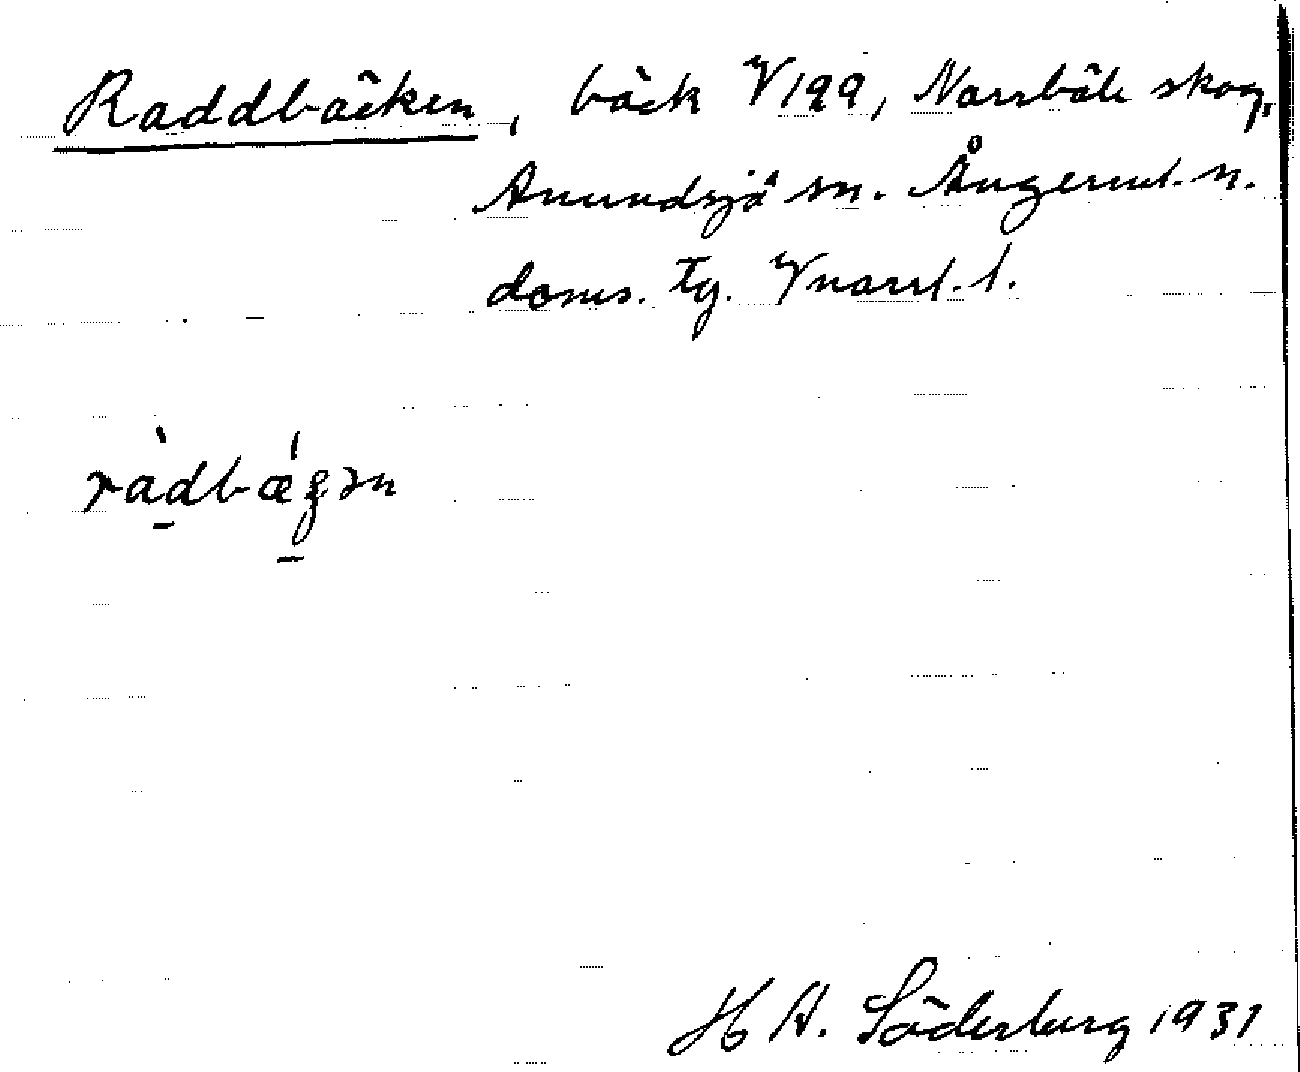 Raddbäcken, bäck V199, Norrböle skog,
Anundsjö sn. Ångerml. n.
doms. tg. Vnorrl. l.
ràdbǽgən
H A. Söderberg 1931